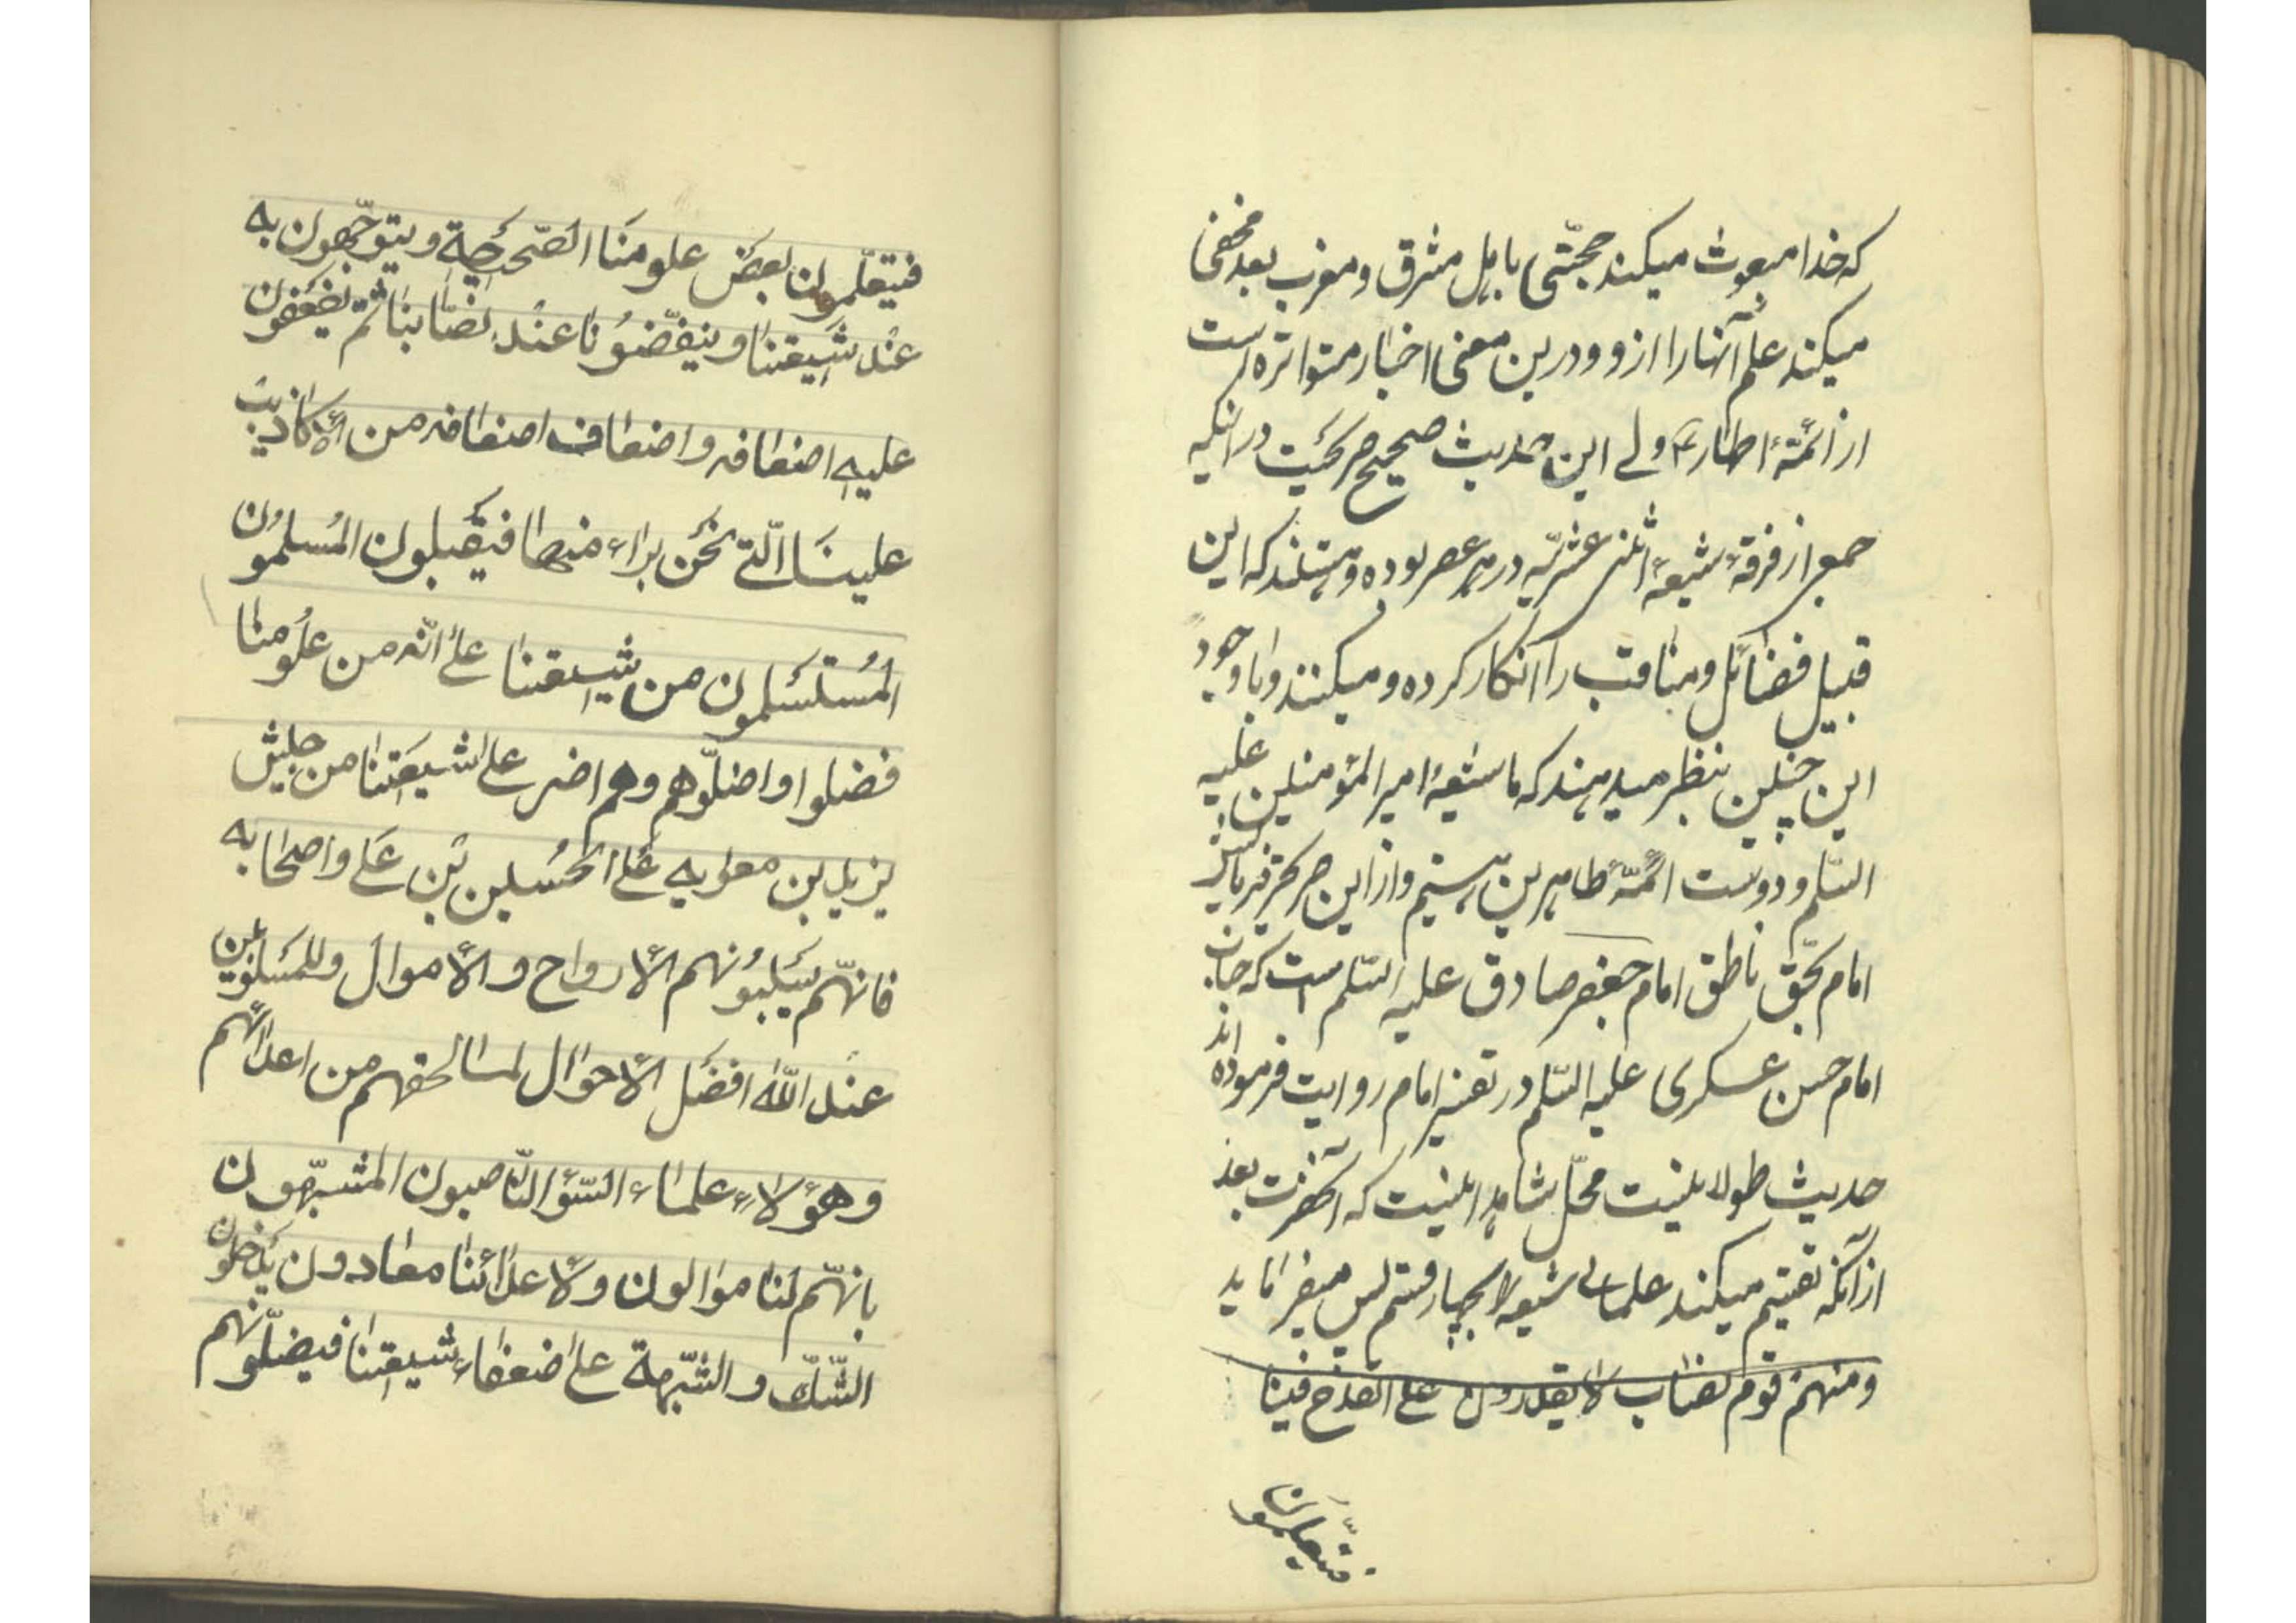 که خدا مبعوث میکند حجتی باهل مشرق و مغرب بعد مخفی
میکند علم آنها را ازو و درین معنی اخبار متواتره است
از ائمّهٔ اطهار ع ولی این حدیث صحیح صریحیت در انکه
جمعی از فرقهٔ شیعهٔ اثنی عشریّه در هر عصر بوده و هستند که این
قبیل فضائل و مناقب را انکار کرده و میکنند و با وجود
این چنین بنظر میدهند که ما شیعهٔ امیر المؤمنین علیه
السّلم و دوست ائمّهٔ طاهرین هستیم و از این صریحتر فرمایش
امام بحقّ ناطق امام جعفر صادق علیه السّلم است که جناب
امام حسن عسکری علیه السّلم در تفسیر امام روایت فرموده اند
حدیث طولانیست محلّ شاهد اینست که آنحضرت بعد
از آنکه تقسیم میکند علمای شیعه را بچهار قسم پس میفرماید
ومنهم قوم نصّاب لا یقدرون علی القدح فینا
فیتعلّمون
فیتعلّمون بعض علومنا الصّحیحة ویتوجّهون به
عند شیعتنا وینقّضونا عند نصّابنا ثمّ یضعفون
علیه اضعافه واضعاف اضعافه من الأکاذیب
علینا الّتی نحن براء منها فیقبلون المسلمون
المستسلمون من شیعتنا علی انّه من علومنا
فضلوا واضلّوهم وهم اضر علی شیعتنا من جیش
یزید بن معویه علی الحسین بن علی واصحابه
فانّهم یسلبونهم الأرواح والأموال وللمسلوبین
عند الله افضل الأحوال لما لحقهم من اعدائهم
وهؤلاء علماء السّوء النّاصبون المشبّهون
بانّهم لنا موالون ولأعدائنا معادون یدخلون
الشّکّ والشّبهة علی ضعفاء شیعتنا فیضلّونهم